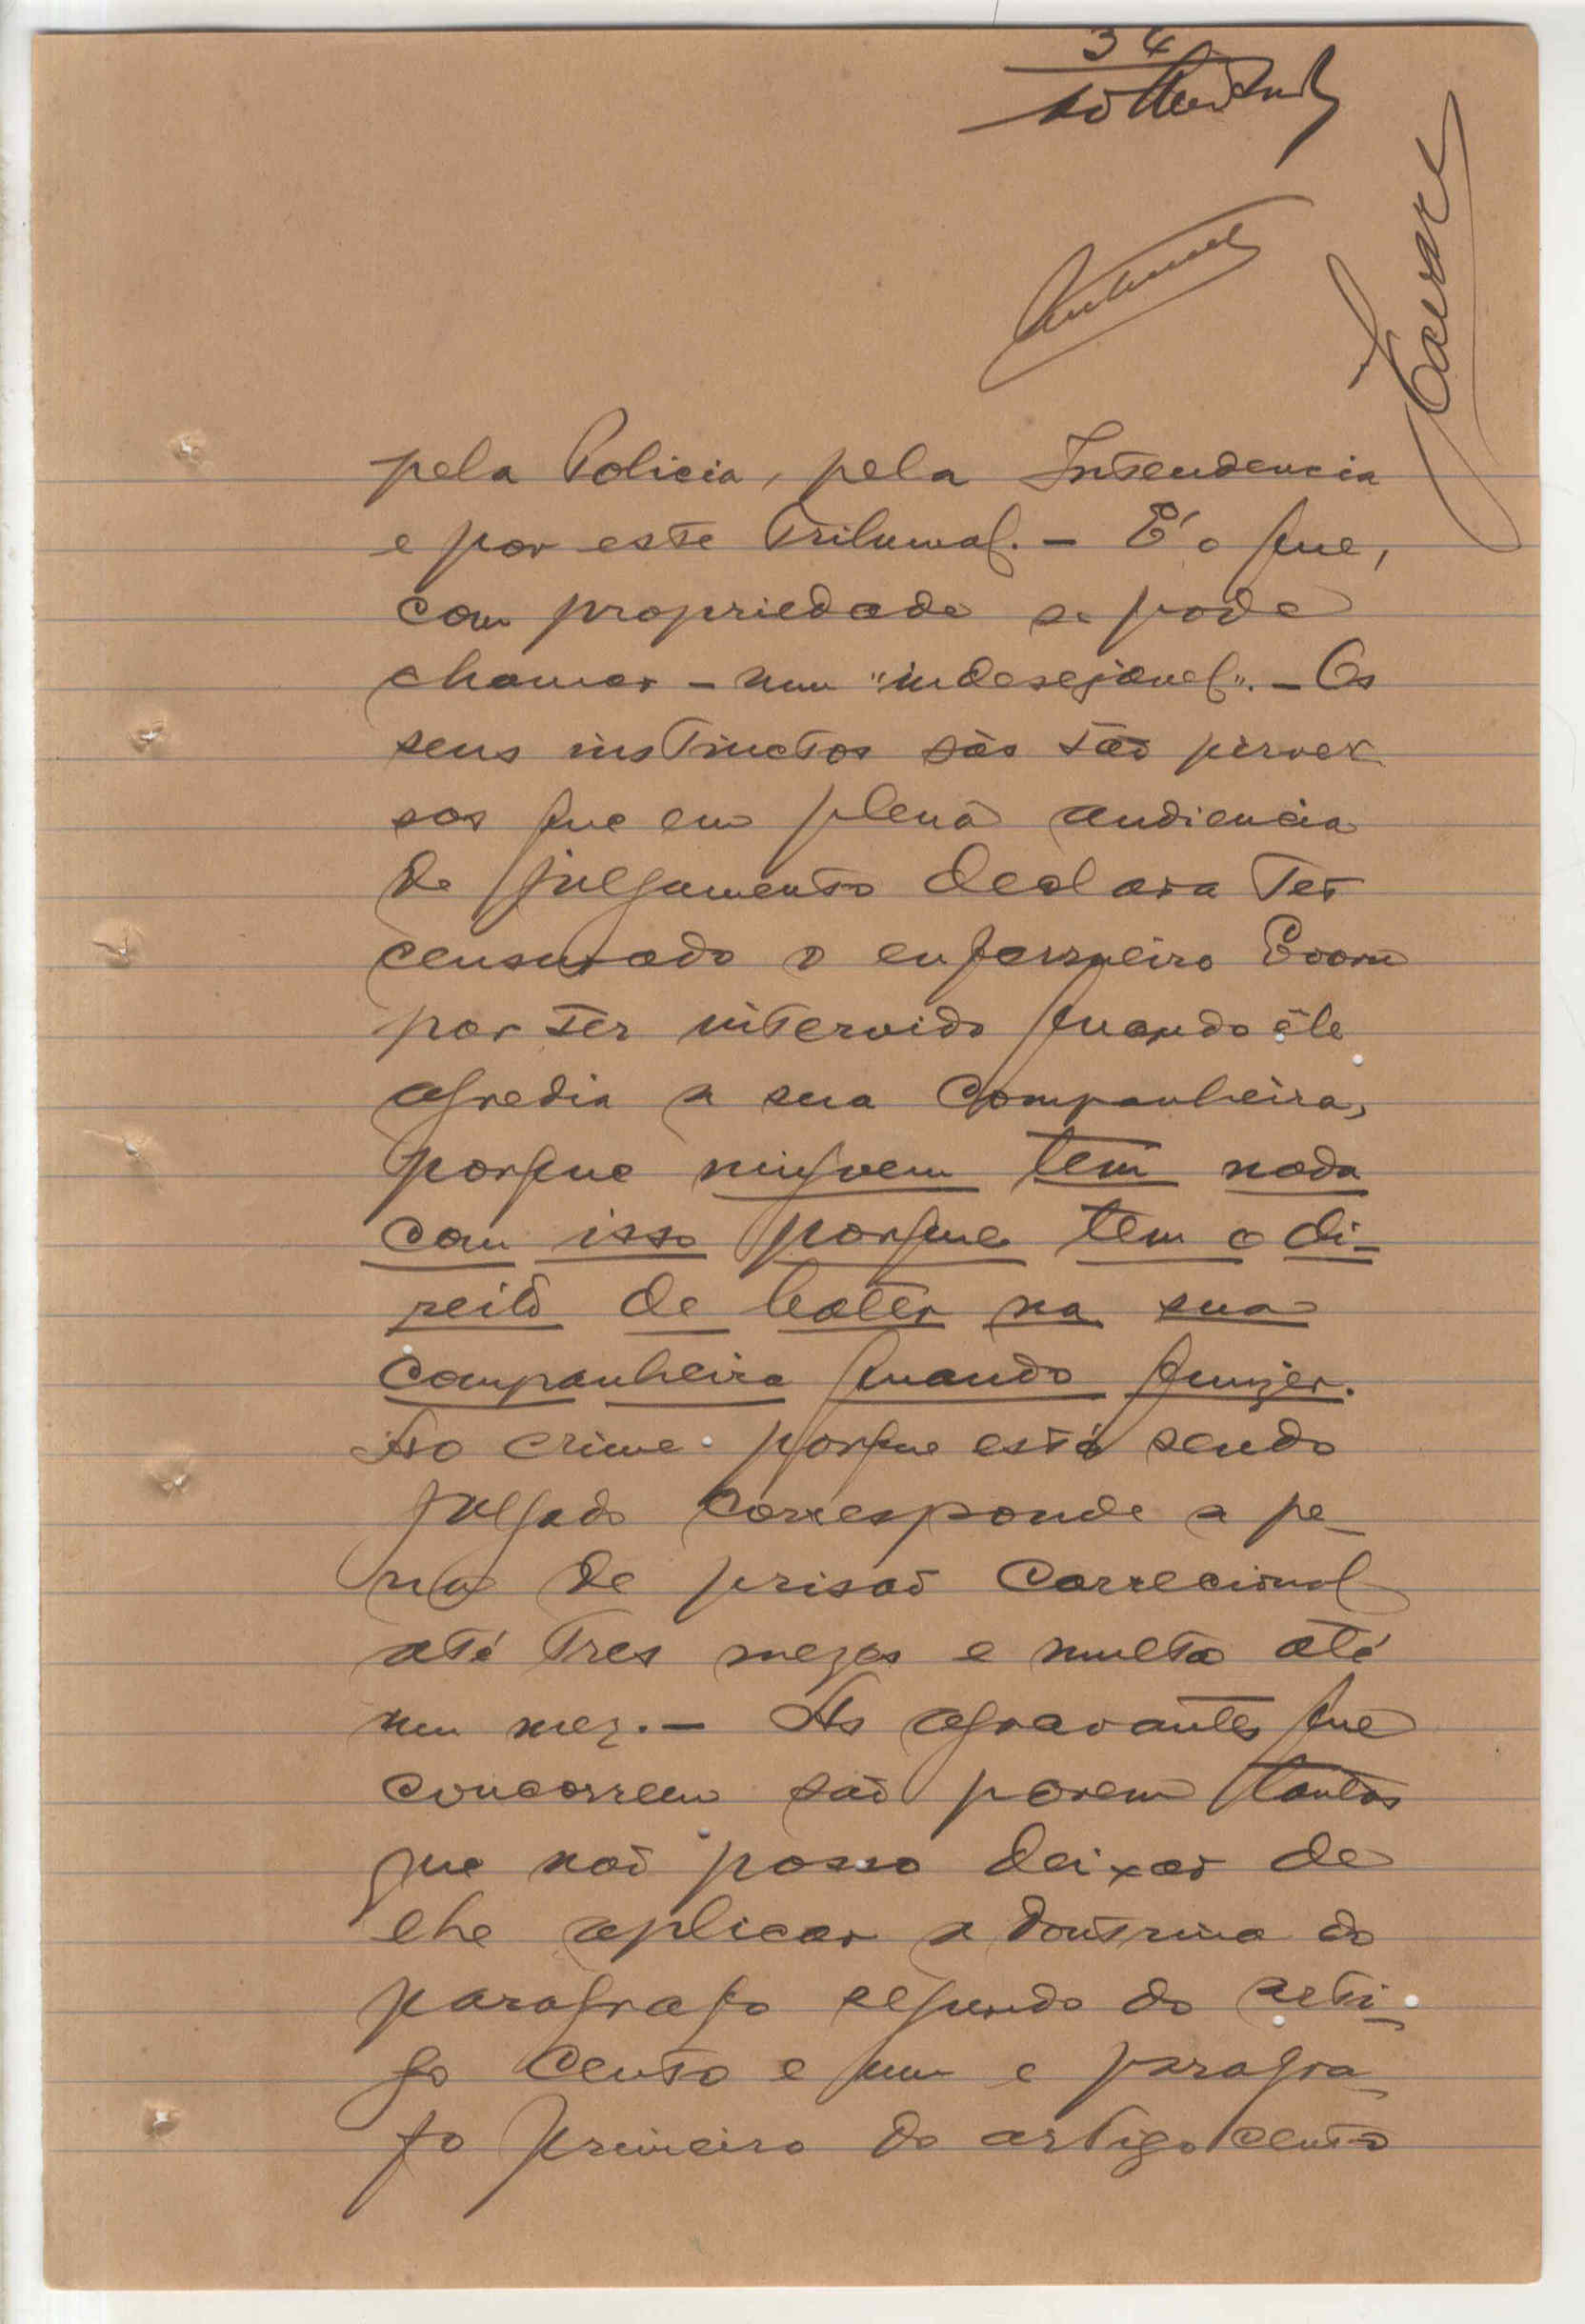 34
pela Policia, pela Intendencia
e por este Tribunal. - É o que,
com propriedade se pode
chamar - um "indesejavel". - Os
seus instinctos são tão perver
sos que em plena audiencia
de julgamento declara ter
censurado o enfermeiro
por ter intervido quando êle
agredia a sua companheira,
porque ninguem tem nada
com isso porque tem o di-
reito de bater na sua
companheira quando quizer.
Ao crime porque está sendo
julgado corresponde a pe-
na de prisão correcional
até tres mezes e multa até
um mez. - As agravantes que
concorrem são porem tantas
que não posso deixar de
lhe aplicar a doutrina do
paragrafo segundo do arti-
go cento e um e paragra-
fo primeiro do artigo cento